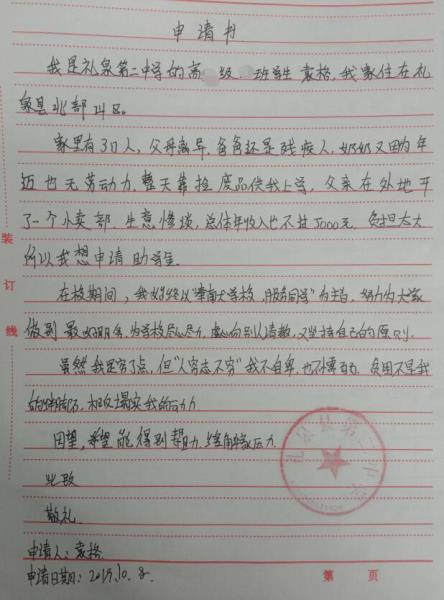 申请书
我是礼泉第二中学的高 级 班学生袁格，我家住在礼
泉县北部山区。
家里有3口人，父母离异，爸爸还是残疾人，奶奶又因为年
迈也无劳动力，整天靠捡废品供我上学，父亲在外地开
了一个小卖部，生意惨淡，总体年收入也不过5000元，负担太大
所以我想申请助学金.
在校期间，我始终以“奉献于学校，服务同学”为主旨，努力为大家
做到最好服务，为学校尽心尽力，虚心向别人请教，又坚持自己的原则.
虽然我是穷了点，但“人穷志不穷”我不自卑，也不 贫困不是我
的绊脚石，相反 我的动力
因望，希望能得到帮助，缓解家压力.
此致
敬礼
申请人：袁格
申请日期：2015.10.8.
装
订
线
礼泉县第二中学
第 页